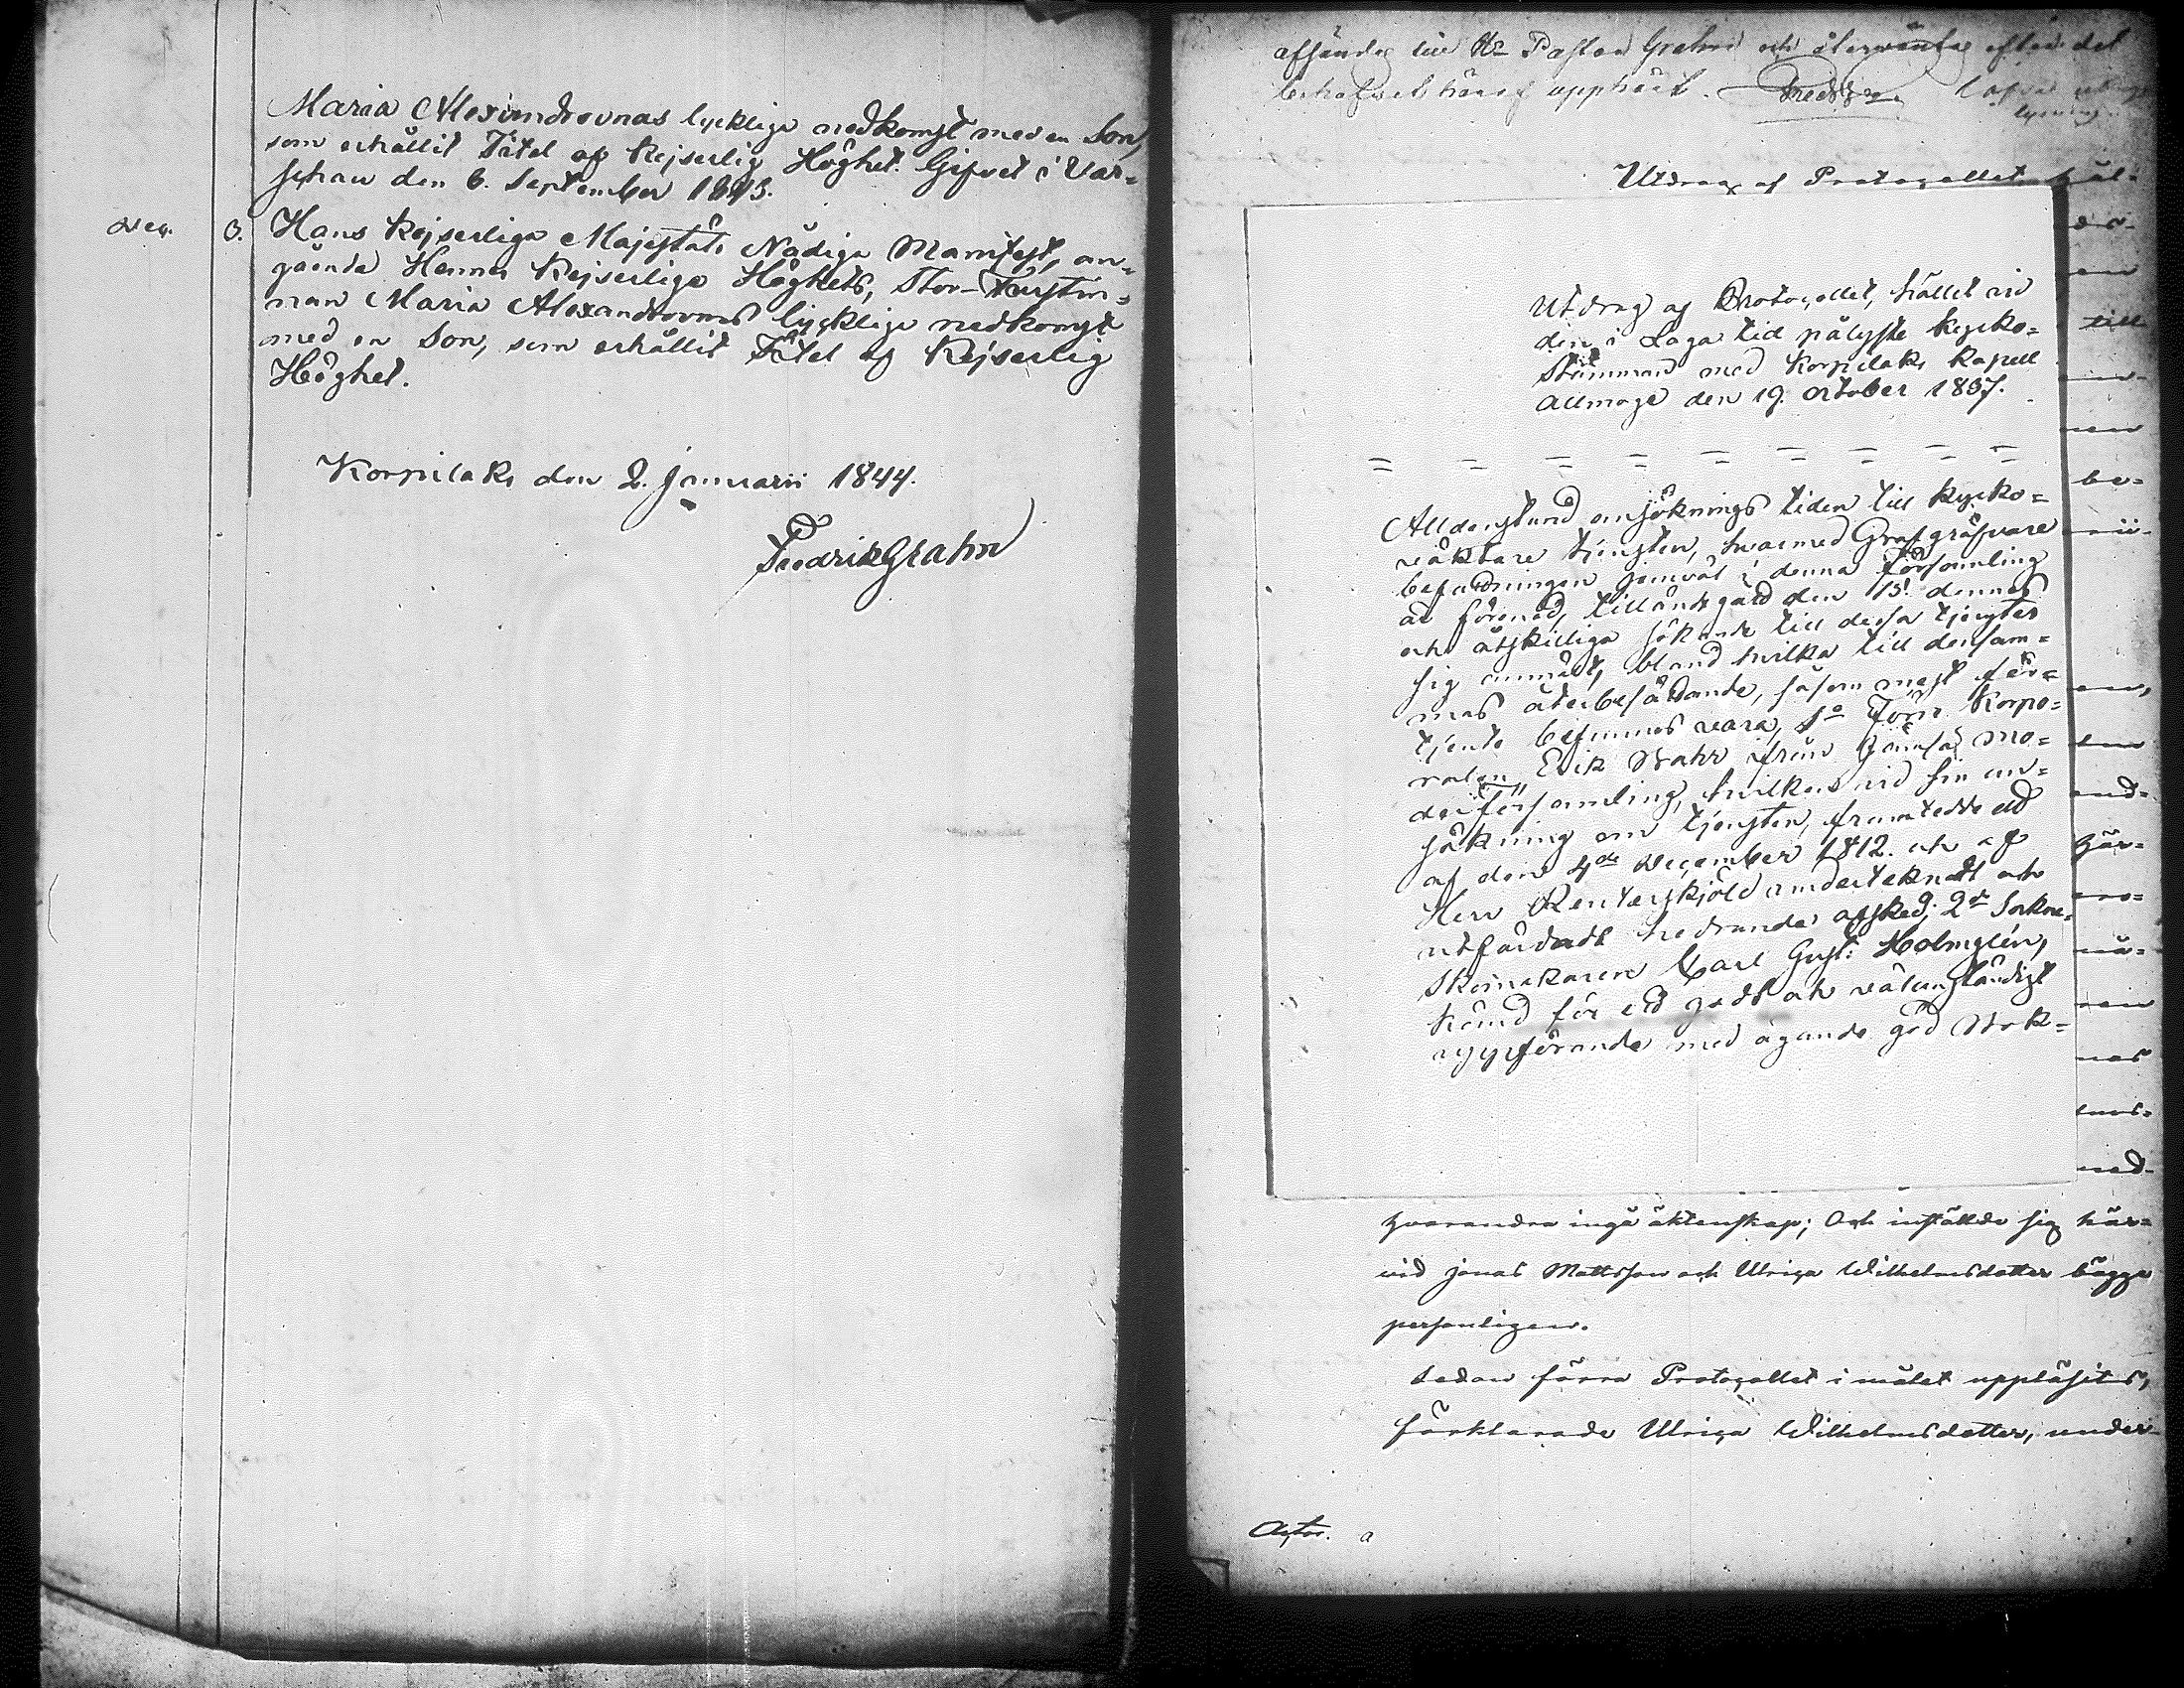 Maria Alexandrovnas lyckliga nedkomst med en Son,
som erhållit Titel af Kejserlig Höghet. Gifvet i War=
schau den 6. September 1843.
Dec. 3. Hans Kejserliga Majestäts Nådiga Manifest, an=
gående Hennes Kejserliga Höghets, Stor-Furstin=
nan Maria Alexandrovnas lyckliga nedkomst
med en Son, som erhållit Titel af Kejserlig
Höghet.
Korpilaks den 2. Januarii 1844.
Fredrik Grahn
afsändes till Hr Pastor Grahn och återväntas efter det
behofvet häraf upphört.
lysning.
Utdrag af Protocollet, hål-
Utdrag af Protocollet, hållet vid
den i Laga tid pålyste kyrko=
Stämman med Korpilaks Kapell
Allmoge den 19. October 1837.
Alldenstund ansöknings tiden till kyrko=
väktare tjensten, hvarmed Grafgräfvare
befattningen jemväl i denna Församling
är förenad, tilländagård den 15. dennes
och åtskilliga sökande till dessa tjenster
sig anmält, bland hvilka till densam=
mas återbesättande, såsom mest för=
tjente befunnes vara, 1o Förre Korpo=
ralen, Erik Stahr ifrån Jämsä mo=
derförsamling, hvilken vid sin an=
sökning om tjensten, framtedde ett
af den 4de December 1812. och af
Herr Reuterskjöld undertecknadt och
utfärdadt hedrande afsked; 2o Sockne=
Skomakaren Carl Gust: Holmglén,
känd för ett godt och välanständigt
uppförande med ägande god Stok=
till
nen
be-
nas
ned-
hvarandra ingå äktenskap; Och inställde sig här=
vid Jonas Mattsson och Ulrica Wilhelmsdotter bägge
personligen.
Sedan förra Protocollet i målet uppläsits,
förklarade Ulrica Wilhelmsdotter, under-
a